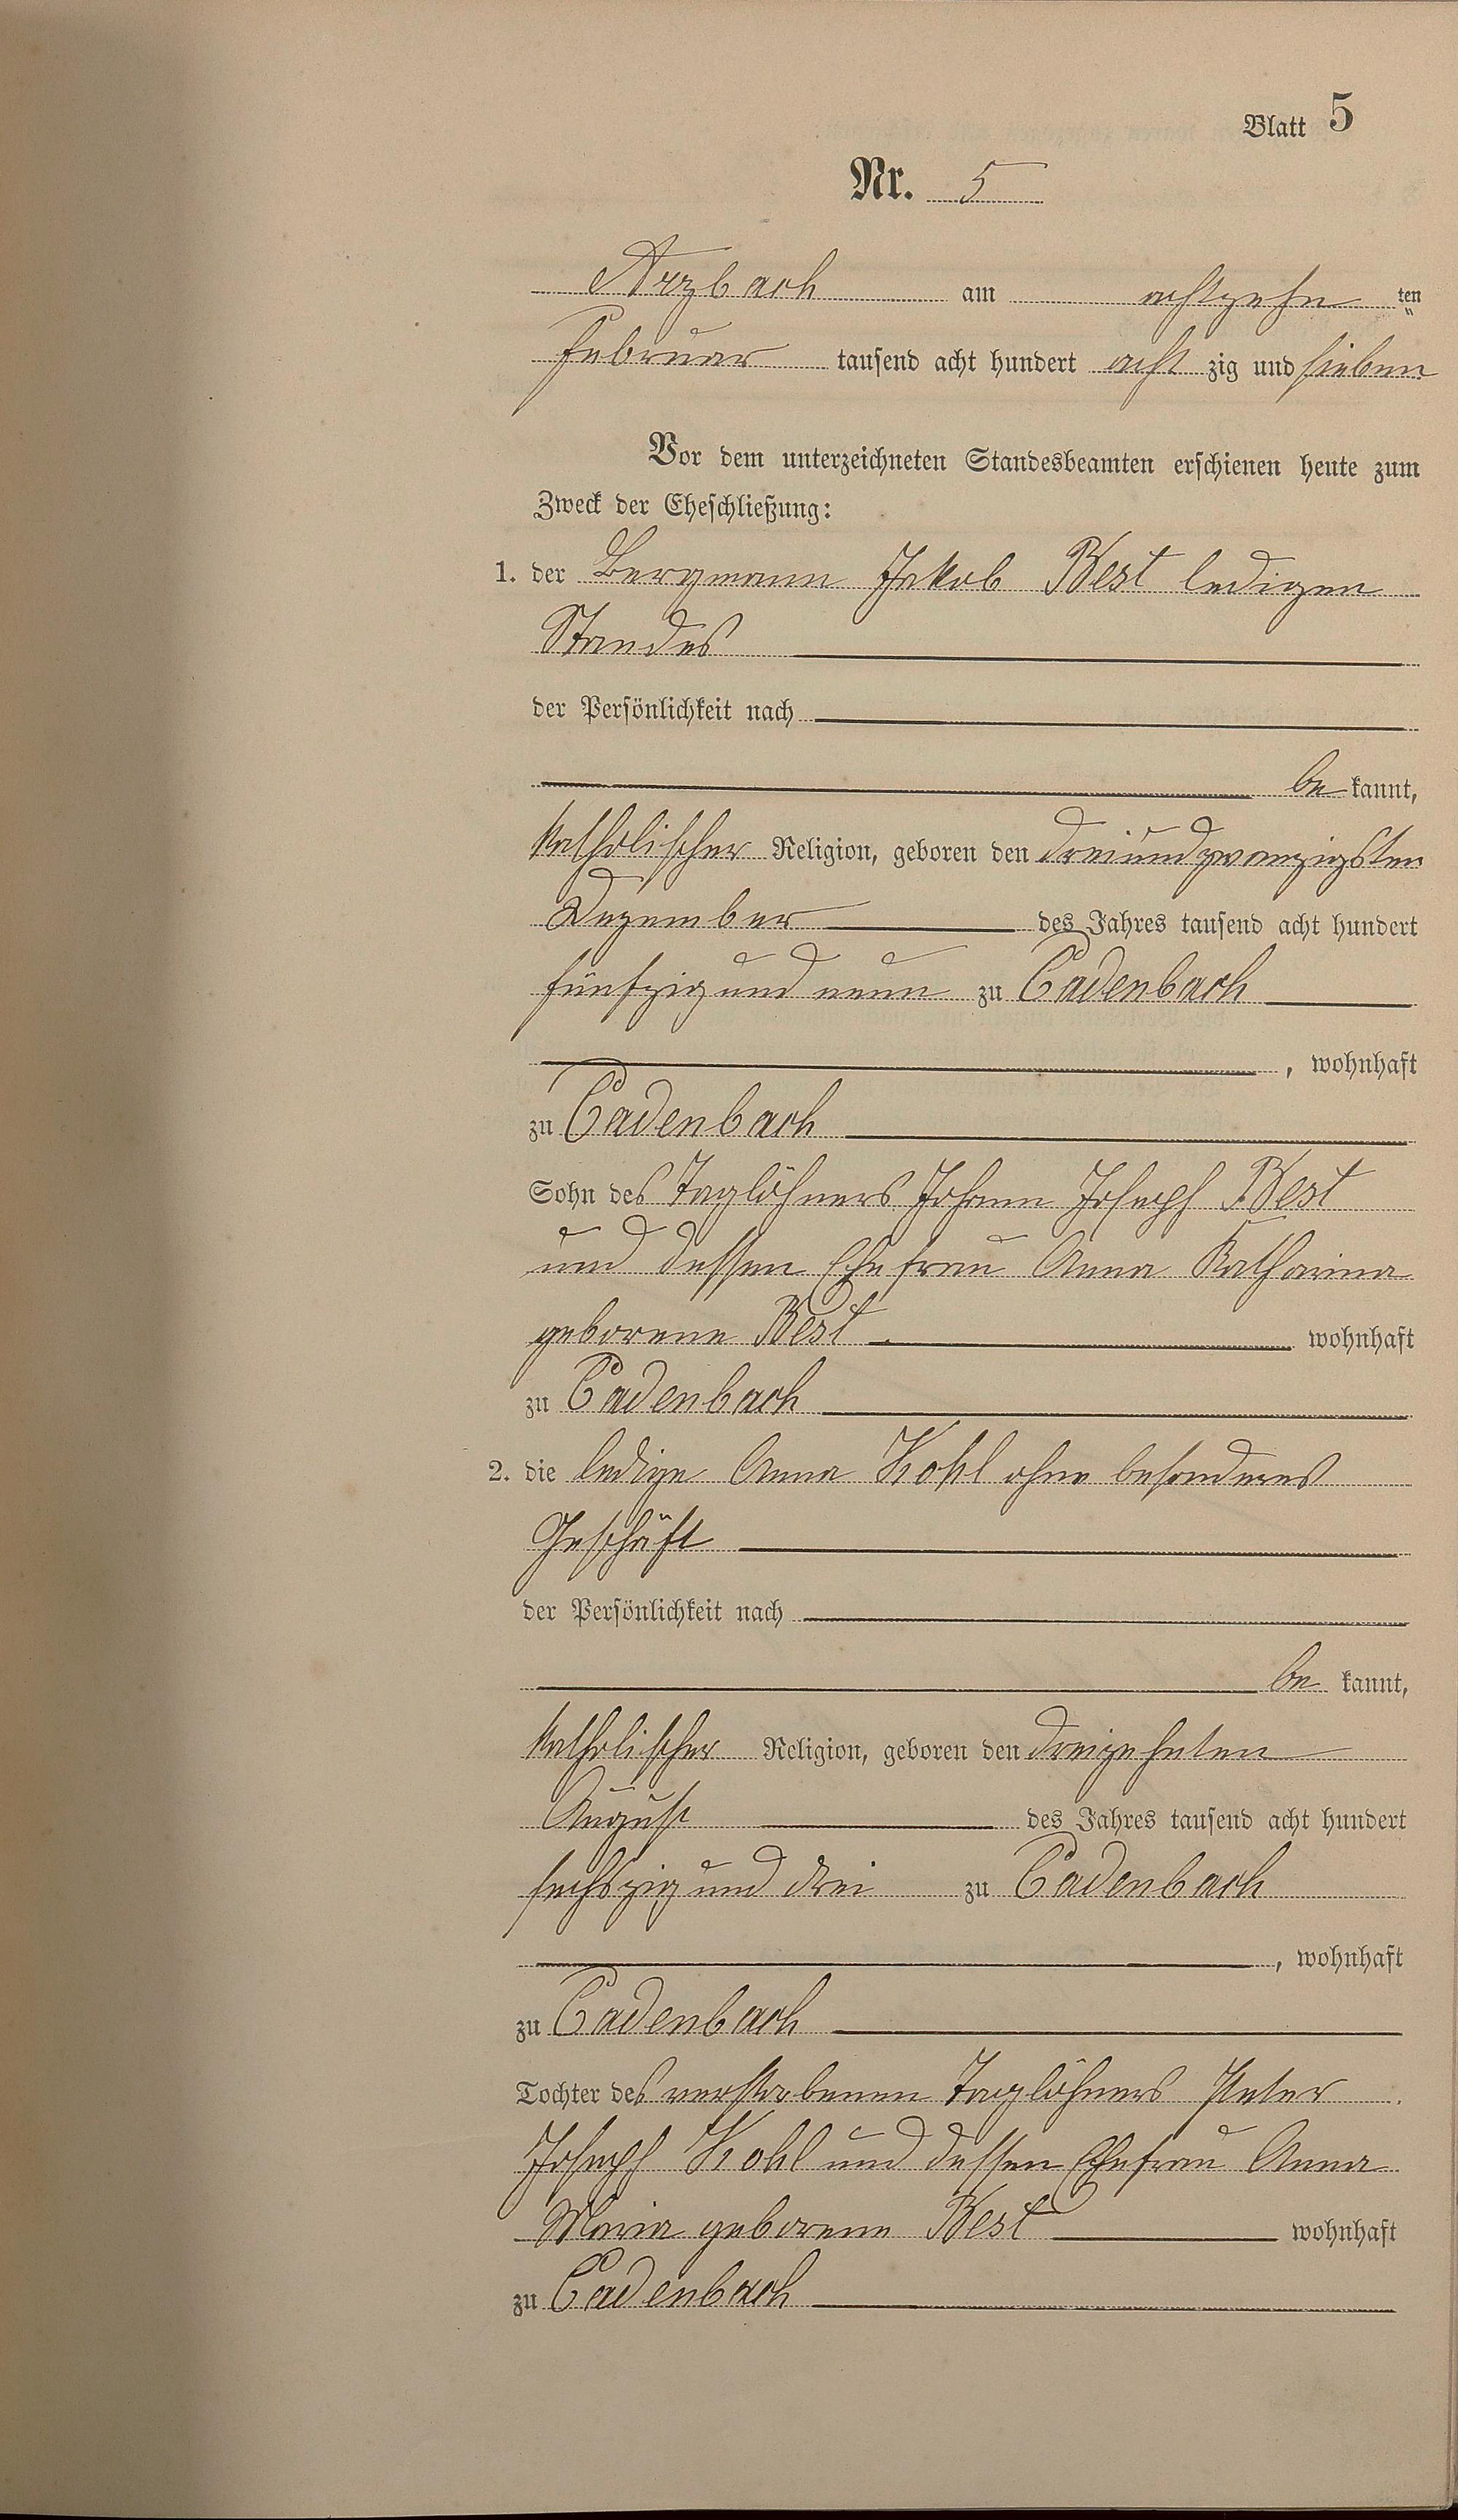 Blatt 5
Nr. 5
Arzbach am achtzehn ten
Februar tausend acht hundert acht zig und sieben
Vor dem unterzeichneten Standesbeamten erschienen heute zum
Zweck der Eheschließung:
1. der Bergmann Jakob Best ledigen
Standes
der Persönlichkeit nach
be kannt,
katholischer Religion, geboren den dreiundzwanzigsten
Dezember des Jahres tausend acht hundert
fünfzig und neun zu Cadenbach
, wohnhaft
zu Cadenbach
Sohn des Taglöhners Johann Joseph Best
und dessen Ehefrau Anna Katharina
geborene Best wohnhaft
zu Cadenbach
2. die ledige Anna Kohl ohne besonderes
Geschäft
der Persönlichkeit nach
be kannt,
katholischer Religion, geboren den dreizehnten
August des Jahres tausend acht hundert
sechszig und drei zu Cadenbach
, wohnhaft
zu Cadenbach
Tochter des verstorbenen Taglöhners Peter
Joseph Kohl und dessen Ehefrau Anna
Maria geborene Best wohnhaft
zu Cadenbach